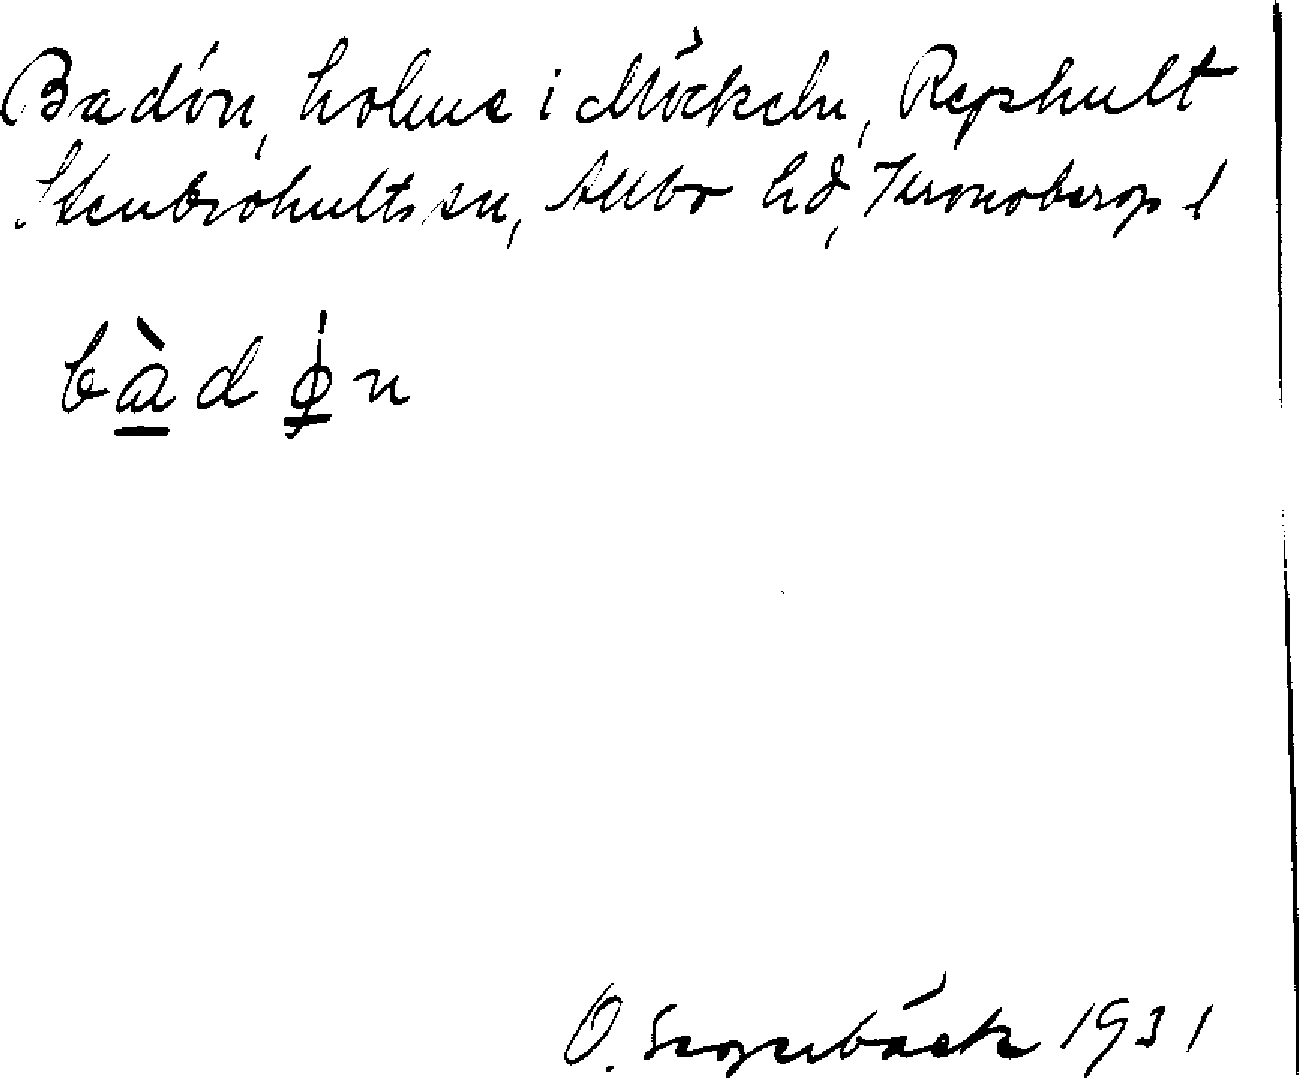 Badön, holme i Möckeln, Rephult
Stenbrohults sn, Allbo hd, Kronobergs l
bàdø̀n
O. 1931